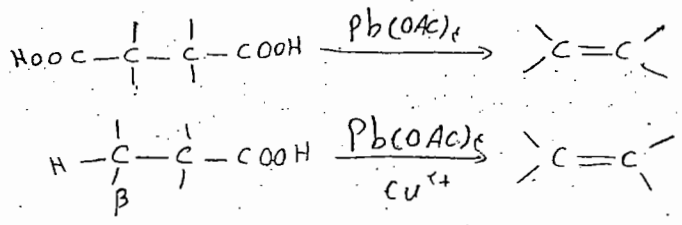 HOOC—C—C—COOH Pb(OAC)₄ C=C
H—C—C—COOH Pb(OAC)₄ C=C
β Cu²⁺